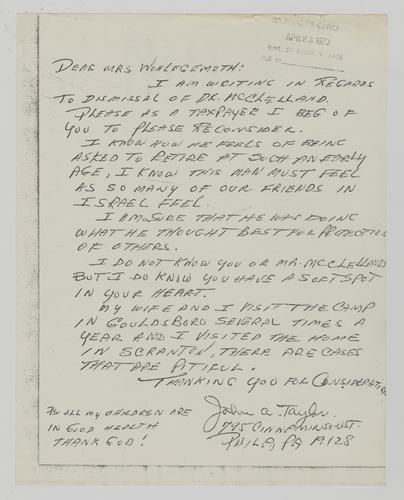 OFFICE
APR 23 1973
DEPT. OF PUBLIC WELFARE
DEAR MRS WOHLEGEMUTH:
I AM WRITING IN REGARDS
TO DISMISSAL OF DR. MCCLELLAND.
PLEASE AS A TAXPAYER I BEG OF
YOU TO PLEASE RECONSIDER.
I KNOW HOW HE FEELS OF BEING
ASKED TO RETIRE AT SUCH AN EARLY
AGE, I KNOW THIS MAN MUST FEEL
AS SO MANY OF OUR FRIENDS IN
ISRAEL FEEL.
I AM SURE THAT HE WAS DOING
WHAT HE THOUGHT BEST FOR PROTECTION
OF OTHERS.
I DO NOT KNOW YOU OR MR. MCCLELLAND
BUT I DO KNOW YOU HAVE A SOFT SPOT
IN YOUR HEART.
MY WIFE AND I VISIT THE CAMP
IN GOULDSBORO SEVERAL TIMES A
YEAR AND I VISITED THE HOME
IN SCRANTON, THERE ARE CASES
THAT ARE PITIFUL.
THANKING YOU FOR CONSIDERATION
John A. Taylor
795 CINNAMINSON ST.
PHILA, PA 19128
ALL MY CHILDREN ARE
IN GOOD HEALTH
THANK GOD!